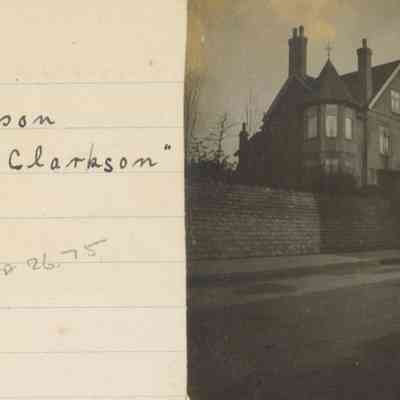 son
Clarkson"
26.75